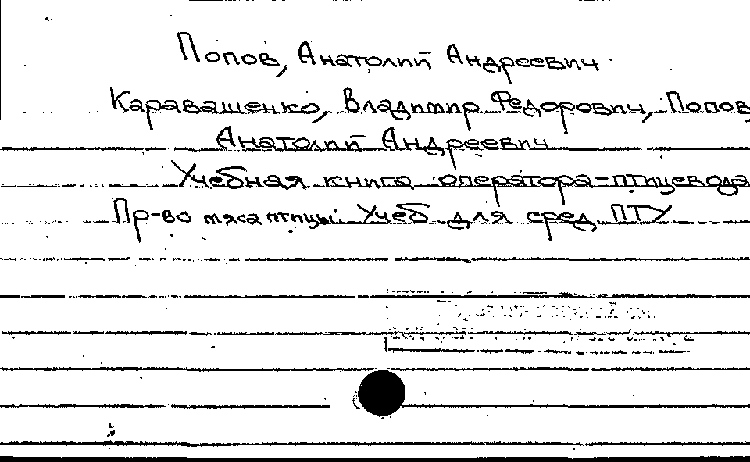 Попов, Анатолий Андреевич
Каравашенко, Владимир Федорович, Попов,
Анатолий Андреевич
Учебная книга оператора-птицевода
Пр-во мяса птицы: Учеб для сред. ПТУ